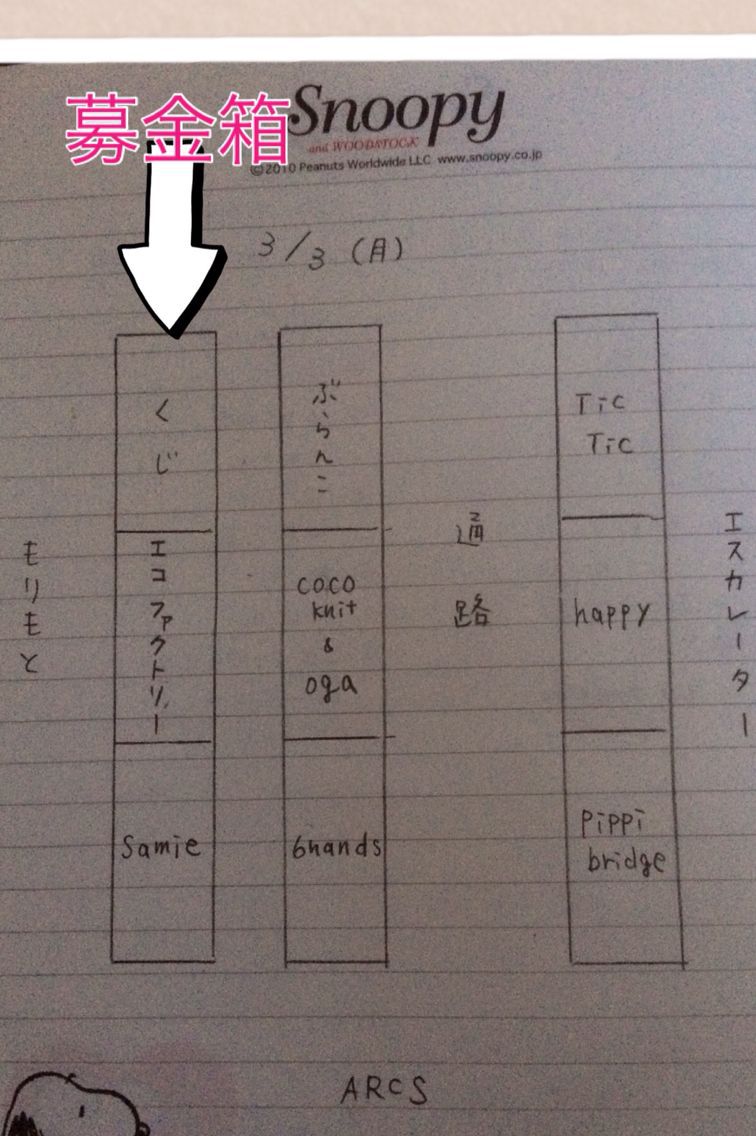 募金箱
Snoopy
and WOODSTOCK
©2010 Peanuts Worldwide LLC www.snoopy.co.jp
3/3 (月)
くじ
ぶらんこ
Tic
Tic
モリモと
エコファクトリー
coco
knit
&
oga
通路
happy
エスカレーター
samie
6hands
pippi
bridge
ARCS